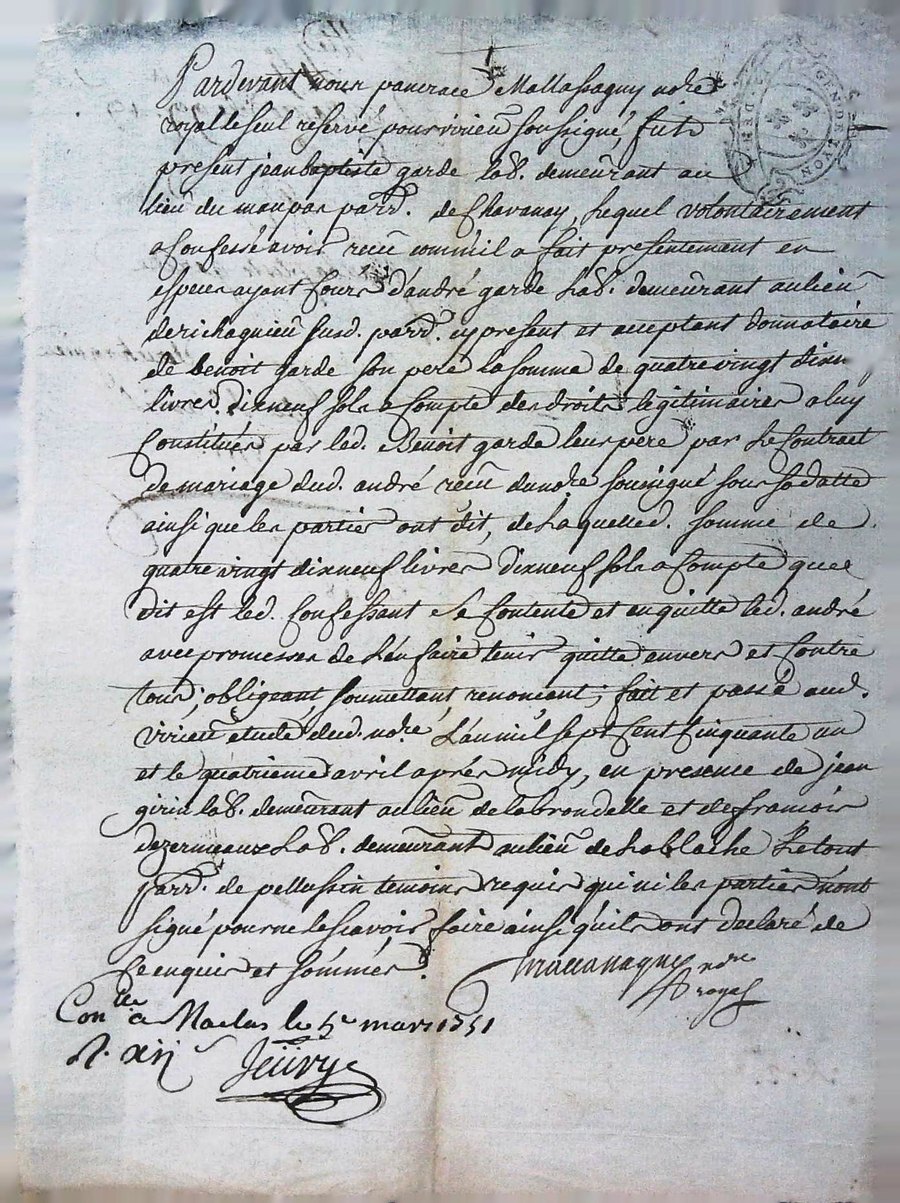 Pardevant nous pancrace Mallassagny no.re
royal le seul reservé pour virieu soussigné, fut
present jean baptiste garde lab.r demeurant au
lieu du maupas parr.e de Chavanay, lequel volontairement
a Confessé avoir receu comm'il a fait presentement en
especes ayant Cours d'andré garde lab.r demeurant au lieu
de richagnieu susd. parr.e cy present et acceptant donnataire
de benoit garde son pere la somme de quatre vingt dix
livres dixneuf sols a Compte des droits legitimaires a luy
Constitués par led. Benoit garde leur pere par le Contract
de mariage dud. andré receu du no.re soussigné sous sa datte
ainsi que les parties ont dit, de laquelle d. somme de
quatre vingt dixneuf livres dixneuf sols a Compte que
dit est led. Confessant se Contente et en quitte led. andré
avec promesses de l'en faire tenir quitte envers et Contre
tous; obligeant, soumettant, renoncant; fait et passé aud.
virieu etude dud. no.re, L'an mil sept Cent Cinquante un
et le quatrieme avril après midy, en presence de jean
girin lab.r demeurant au lieu de la brondelle et de francois
dezermeaux lab.r demeurant au lieu de la blache le tout
parr.e de pellussin temoins requis qui ni les parties n'ont
signé pour ne le scavoir faire ainsi qu'ils ont declaré de
ce enquis et sommés.
Mallassagny no.re
royal
Con.lé a Maclas le 5.e 1751
R. xij s
GEN DE LYON